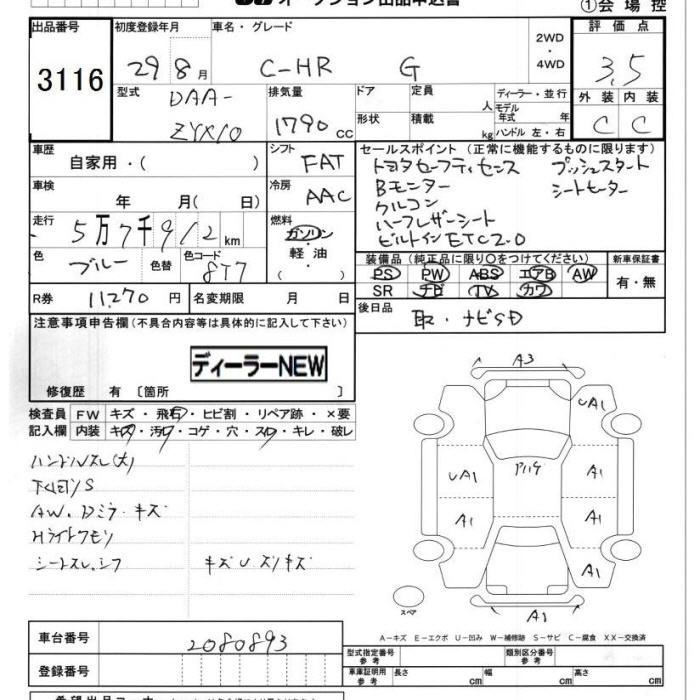 オークション出品申込書
①会場控
出品番号 初度登録年月 車名・グレード 2WD・4WD 評価点
3116 29 8月 C-HR G 3.5
型式 DAA-ZYX10 排気量 1790 cc ドア 定員 人 ディーラー・並行 外装 内装
形状 積載 kg モデル年式 年 ハンドル 左・右 C C
車歴 自家用・( ) シフト FAT セールスポイント (正常に機能するものに限ります)
トヨタセーフティセンス プッシュスタート
車検 年 月( 日) 冷房 AAC Bモニター シートヒーター
クルコン
走行 5万7千912km 燃料 ガソリン・軽油・( ) ハーフレザーシート
ビルトインETC2.0
色 ブルー 色替 色コード 8T7 装備品 (純正品に限り○をつけてください) 新車保証書
PS PW ABS エアB AW 有・無
R券 11,270円 名変期限 月 日 SR ナビ TV カワ
注意事項申告欄(不具合内容等は具体的に記入して下さい) 後日品 取・ナビSD
ディーラーNEW
修復歴 有 〔箇所 〕
検査員記入欄 FW キズ・飛石・ヒビ割・リペア跡・×要
内装 キズ・汚れ・コゲ・穴・スレ・キレ・破レ
ハンドルスレ(大)
AW.Dミラーキズ
Hライトクモリ
シートスレ.シワ
A3
UA1
UA1 A1
A1 A1
A1
スペア A1
A-キズ E-エクボ U-凹み W-補修跡 S-サビ C-腐食 XX-交換済
車台番号 2080893
型式指定番号 参考 類別区分番号 参考
登録番号 車庫証明用 参考 長さ cm 幅 cm 高さ cm
希望出品コーナー